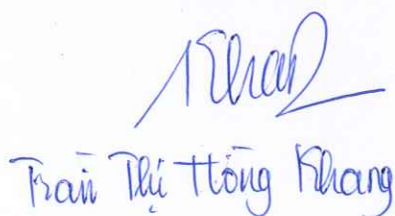 Khang
Trần Thị Hồng Khang